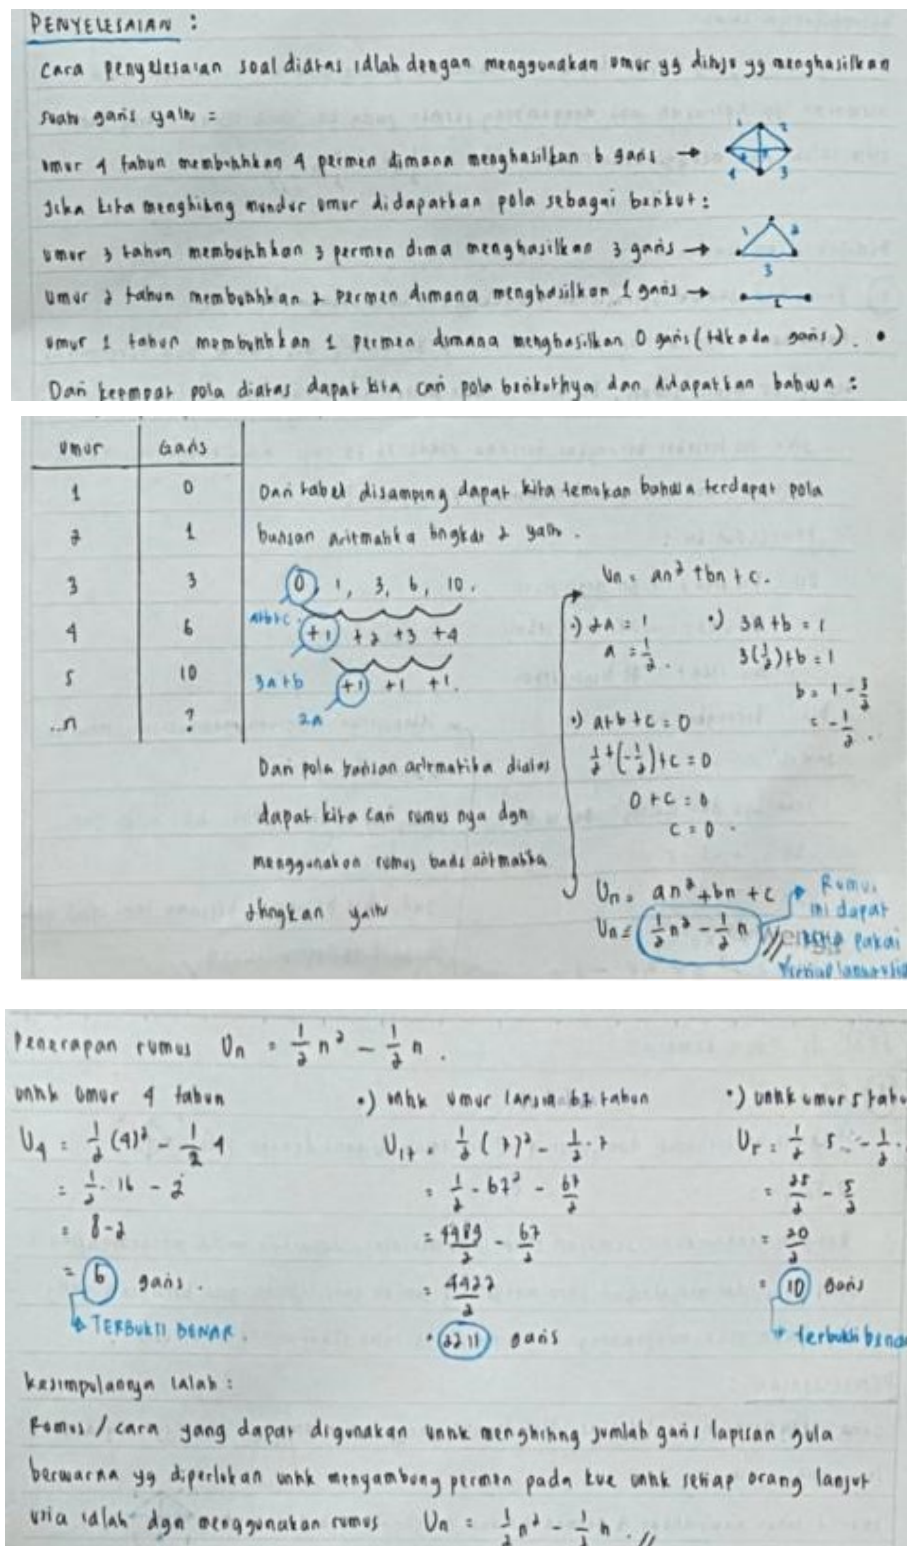 PENYELESAIAN :
Cara penyelesaian soal diatas ialah dengan menggunakan umur yg dituju yg menghasilkan
suatu garis yaitu =
umur 4 tahun membutuhkan 4 permen dimana menghasilkan 6 garis →
1 2 4 3
Jika kita menghitung mundur umur didapatkan pola sebagai berikut :
umur 3 tahun membutuhkan 3 permen dima menghasilkan 3 garis →
1 2 3
umur 2 tahun membutuhkan 2 permen dimana menghasilkan 1 garis →
1
umur 1 tahun membutuhkan 1 permen dimana menghasilkan 0 garis (tdk ada garis). •
Dari keempat pola diatas dapat kita cari pola berikutnya dan didapatkan bahwa :
umur Garis
1 0
2 1
3 3
4 6
5 10
..n ?
Dari tabel disamping dapat kita temukan bahwa terdapat pola
barisan aritmatika tingkat 2 yaitu.
0, 1, 3, 6, 10.
a+b+c
+1 +2 +3 +4
3a+b
+1 +1 +1.
2a
Dari pola barisan aritmatika diatas
dapat kita cari rumus nya dgn
menggunakan rumus baris aritmatika
2tingkan yaitu
Un = an² + bn + c.
•) 2A = 1
a = 1/2.
•) 3A + b = 1
3(1/2) + b = 1
b = 1 - 3/2
= -1/2.
•) a+b+c = 0
1/2 + (-1/2) + c = 0
0 + c = 0
c = 0.
Un = an² + bn + c
Un = 1/2 n² - 1/2 n //
Rumus
ini dapat
pakai
Penerapan rumus Un = 1/2 n² - 1/2 n.
untuk umur 4 tahun
U4 = 1/2 (4)² - 1/2 4
= 1/2 . 16 - 2
= 8-2
= 6 garis.
TERBUKTI BENAR.
•) untuk umur lansia 67 tahun
U17 = 1/2 (7)² - 1/2 . 7
= 1/2 - 67² - 67/2
= 4489/2 - 67/2
= 4422/2
• 2211 garis
•) untuk umur 5 tahu
U5 = 1/2 . 5 - 1/2 .
= 25/2 - 5/2
= 20/2
= 10 garis
terbukti bena
kesimpulannya ialah :
Rumus / cara yang dapat digunakan untuk menghitung jumlah garis lapisan gula
berwarna yg diperlukan untuk menyambung permen pada kue untuk setiap orang lanjut
usia ialah dgn menggunakan rumus Un = 1/2 n² - 1/2 n. //